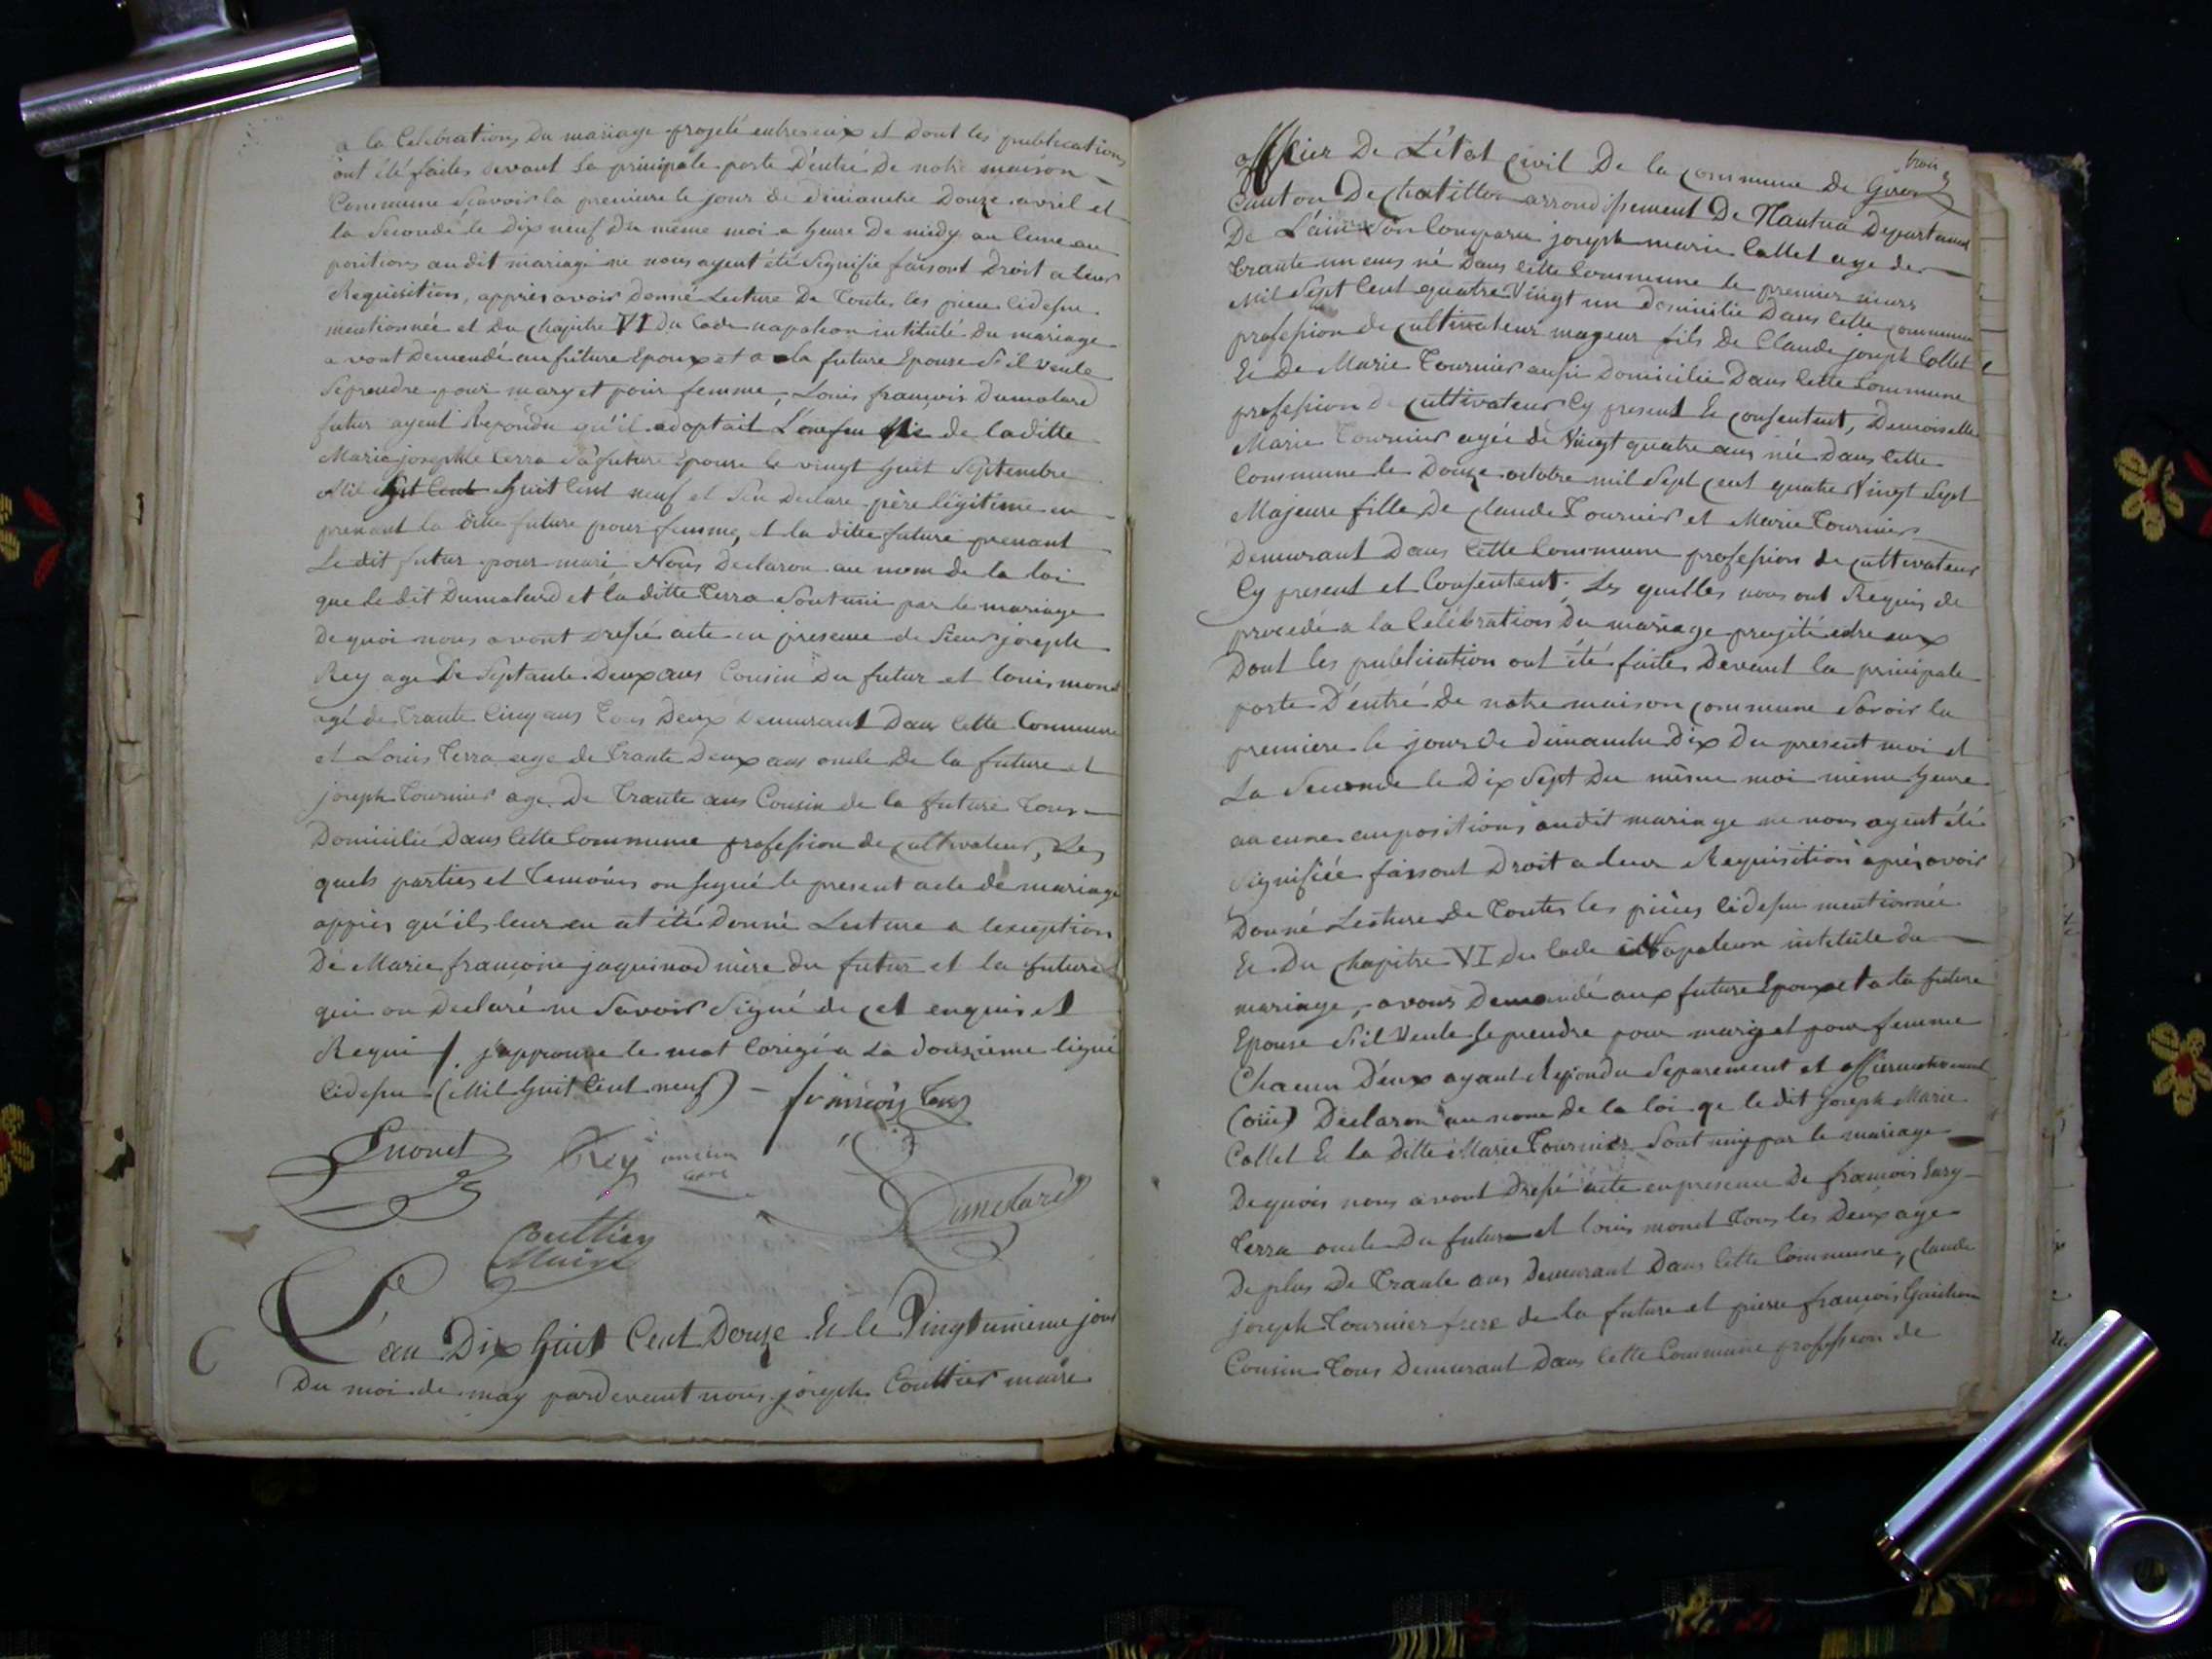 a la Celebrations du mariage projeté entreseux et dont les publications
ont été faites devant la principale porte D'entré de notre maison
Commune Sçavoir la premiere le jour de dimanche Douze avril et
la Seconde le Dix neuf du meme moi a heure De midy au lune au
positions au dit mariage ne nous ayent été Signifie faisont Droit a leur
Requisition, appries avoir donné Lecture De toutes les piece cidesu
mentionnée et Du Chapitre VI du Code napoleon intitulé du mariage
avont Demendé au future Epoux et a la future Epouse S'il veule
Seprendre pour mary et pour femme, Louis françois Dumolard
futur ayent Repondu qu'il adoptait L'enfen de laditte
Marie josephte terra Sa future Epouse le vingt huit Septembre
Mil Sept Cent huit Cent neuf et Sen Declare père légitime en
prenant la ditte future pour femme, et la ditte future prenant
Le dit futur pour mari Nous Declaron au nom de la loi
que le dit Dumolard et la ditte terra Sont uni par le mariage
De quoi nous avont dressé acte en presence de Sieur joseph
Rey age De Septante Deux ans Cousin Du futur et louis monet
agé de trante Cinq ans tous Deux Demeurant Dans Cette Commune
et Louis terra age de trante Deux ans oncle De la future et
joseph tournier age De trante ans Cousin de la future tous
Domicilié Dans Cette Commune profession de cultivateur, Les
quels parties et temoins on signé le present acte de mariage
appries qu'il leur en at été Donné Lecture a lexception
De Marie francoise jaquinod mère du futur et la future
qui on Declaré ne Savoir Signé de cet enquis et
Requi /. japprouve le mot Corigé a La Dousieme ligne
Cidesu (Mil huit Cent neuf) - françois
Lmonet Rey ancien
Dumolard
Coutthier
Maire
L'an Dix huit Cent Douze Et le Vingtunieme jour
Du moi de may pardevant nous joseph Coutthier maire
trois
officier De L'état Civil De la Commune De Giron
Canton De Chatillon arrondissement De Nantua Departement
De L'ain Son Comparu joseph marie Collet age de
trante un ans né Dans Cette Commune le premier mars
Mil Sept Cent quatre Vingt un domicilié Dans Cette Commune
profession de Cultivateur mageur fils De Claude joseph Collet
Et De Marie tournier aussi Domicilié Dans Cette Commune
profession de Cultivateur Cy present Et Consentent, Demoiselle
Marie tournier agée de Vingt quatre ans née Dans Cette
Commune le Douze octobre mil Sept cent quatre Vingt Sept
Majeure fille De Claude tournier et Marie tournier
Demeurant Dans Cette Commune profession de cultivateur
Cy present et Consentent. Les quelles nous ont Requis de
procedé a la Celébrations Du mariage projité entre eux
Dont les publication ont été faites Devant la principale
porte D'entré de notre maison commune Savoir la
premiere le jour de dimanche Dix Du present moi et
La Seconde le Dix Sept Du même moi même heure
au cune aupositions audit mariage ne nous ayent été
signifiée faisont Droit a leur Requisition aprés avoir
Donné Lecture De toutes les pièces Cidesu mentionnée
Et Du Chapitre VI Du Code Napoleon intitulé du
mariage, avons Demendé aux future Epoux et a la future
Epouse S'il Veule se prendre pour mary et pour femme
Chacun D'eux ayant Repondu Separement et affirmativement
(oui) Declaron au nom de la loi qe le dit joseph Marie
Collet Et la Ditte Marie tournier Sont uny par le mariage
De quois nous avont Dressé acte en presence De francois Eury
terra oncle Du future et louis monet tous les Deux age
De plus De trante ans Demeurant Dans Cette Commune, Claude
joseph tournier frere de la future et pierre françois
Cousin tous Demeurant Dans Cette Commune profession de